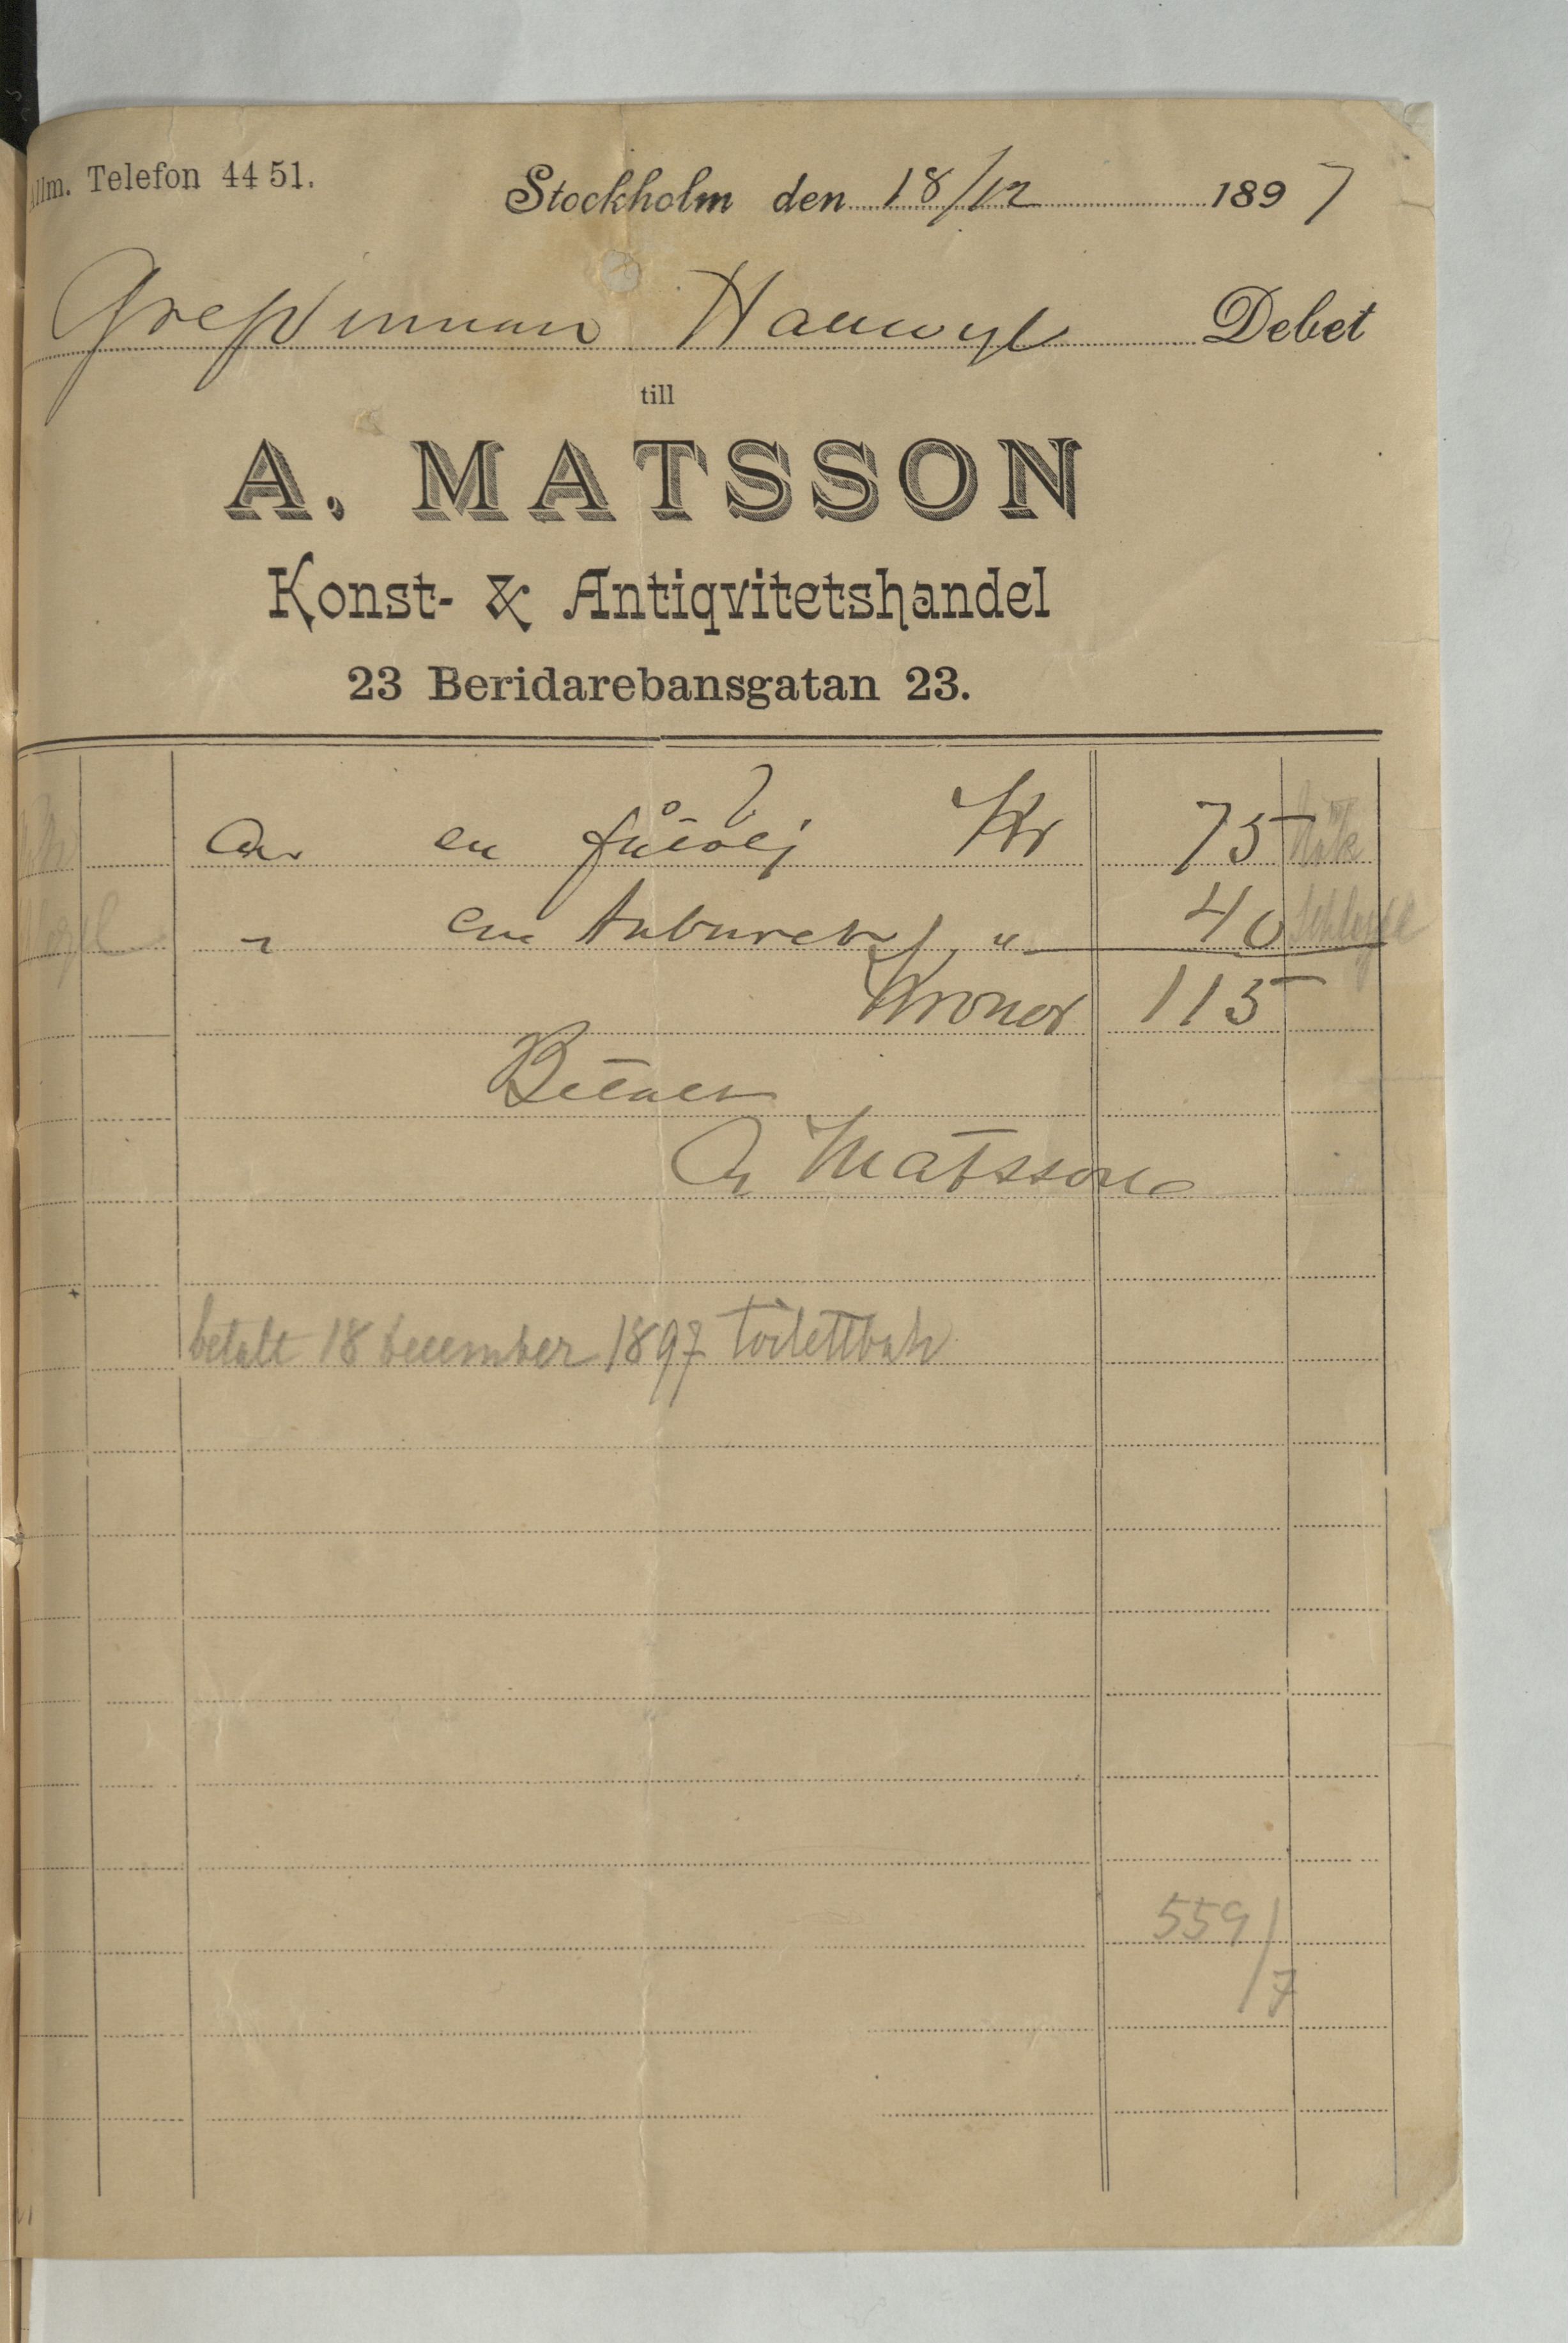 Allm. Telefon 44 51.
Stockholm den 18/12 1897
Grefvinnan Hallwyl Debet
till
A. MATSSON
Konst- & Antiqvitetshandel
23 Beridarebansgatan 23.
en fåtölj Kr 75
" en taburett " 40
Kronor 115
Betalt
A Matsson
betalt 18 december 1897
559/7